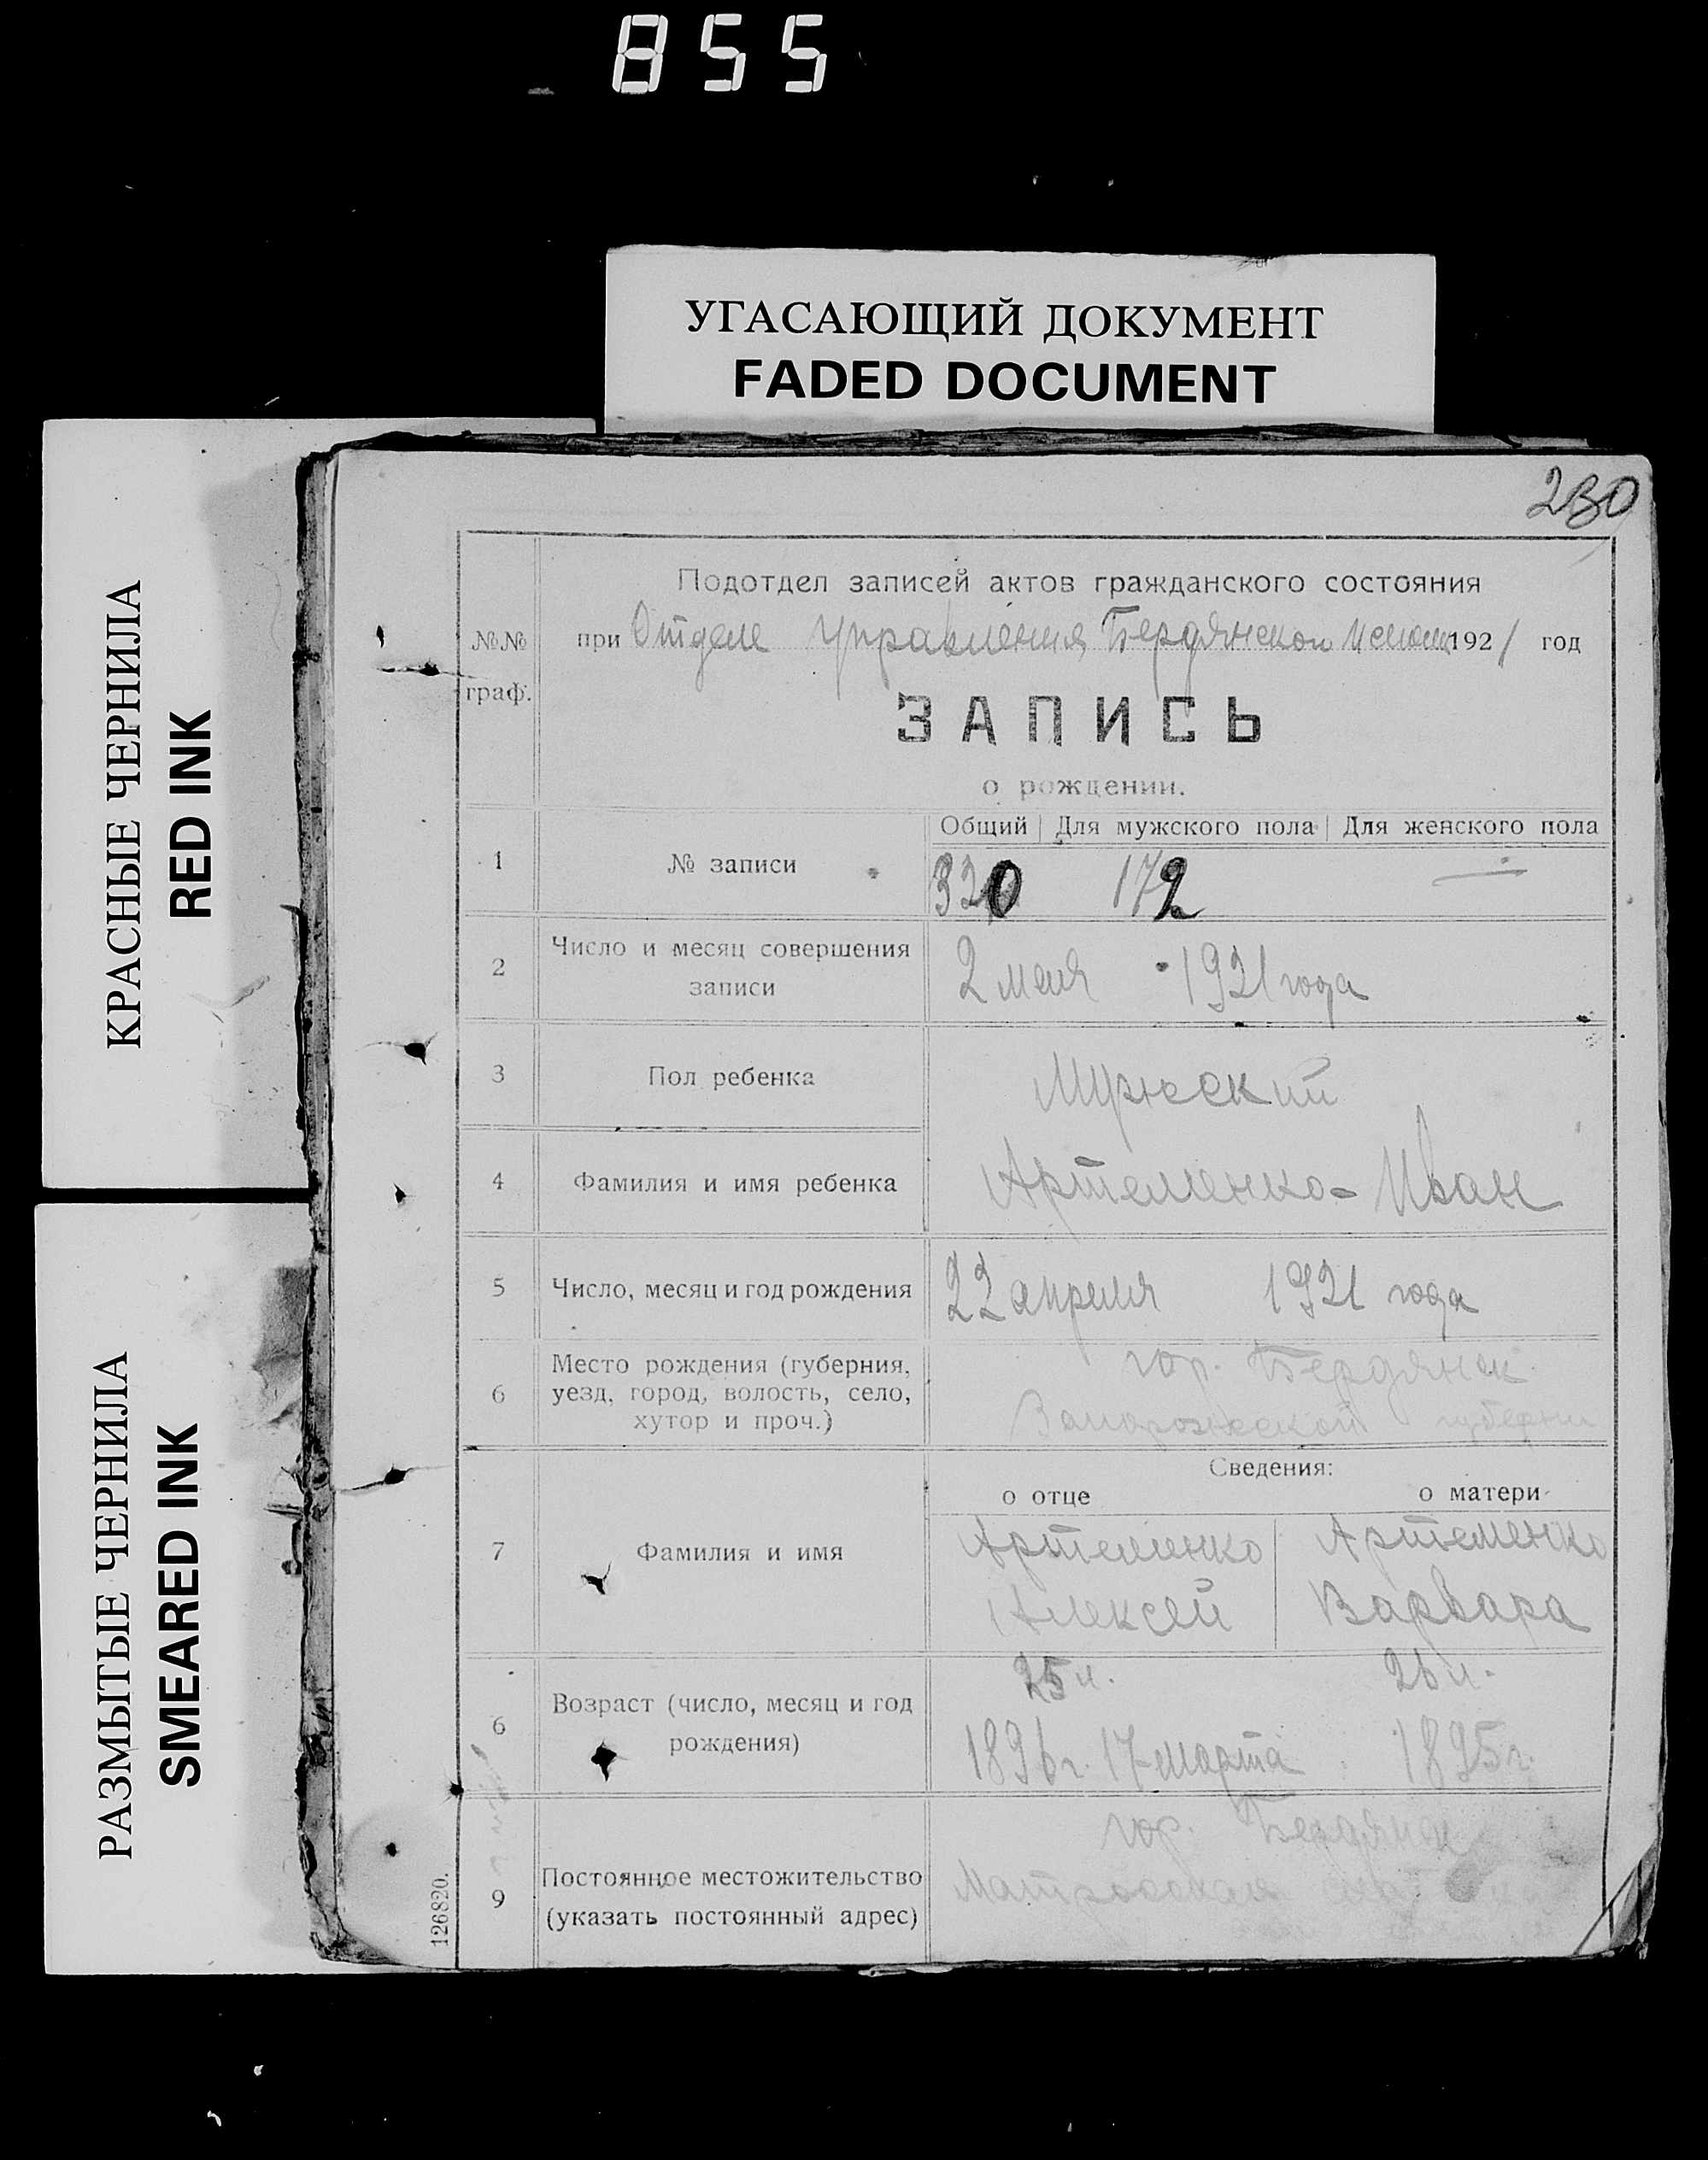 855
УГАСАЮЩИЙ ДОКУМЕНТ
FADED DOCUMENT
КРАСНЫЕ ЧЕРНИЛА
RED INK
РАЗМЫТЫЕ ЧЕРНИЛА
SMEARED INK
230
Подотдел записей актов гражданского состояния
№№ граф.
при Отделе Управления Бердянского 1921 год
ЗАПИСЬ
о рождении.
Общий Для мужского пола Для женского пола
1 № записи 320 172 —
2 Число и месяц совершения записи 2 мая 1921 года
3 Пол ребенка Мужской
4 Фамилия и имя ребенка Артеменко - Иван
5 Число, месяц и год рождения 22 апреля 1921 года
6 Место рождения (губерния, уезд, город, волость, село, хутор и проч.) гор. Бердянск
Запорожской губернии
Сведения:
о отце о матери
7 Фамилия и имя Артеменко Алексей Артеменко Варвара
6 Возраст (число, месяц и год рождения) 25 л. 26 л.
1896 г. 17 марта 1895 г.
9 Постоянное местожительство (указать постоянный адрес) гор. Бердянск
126820.